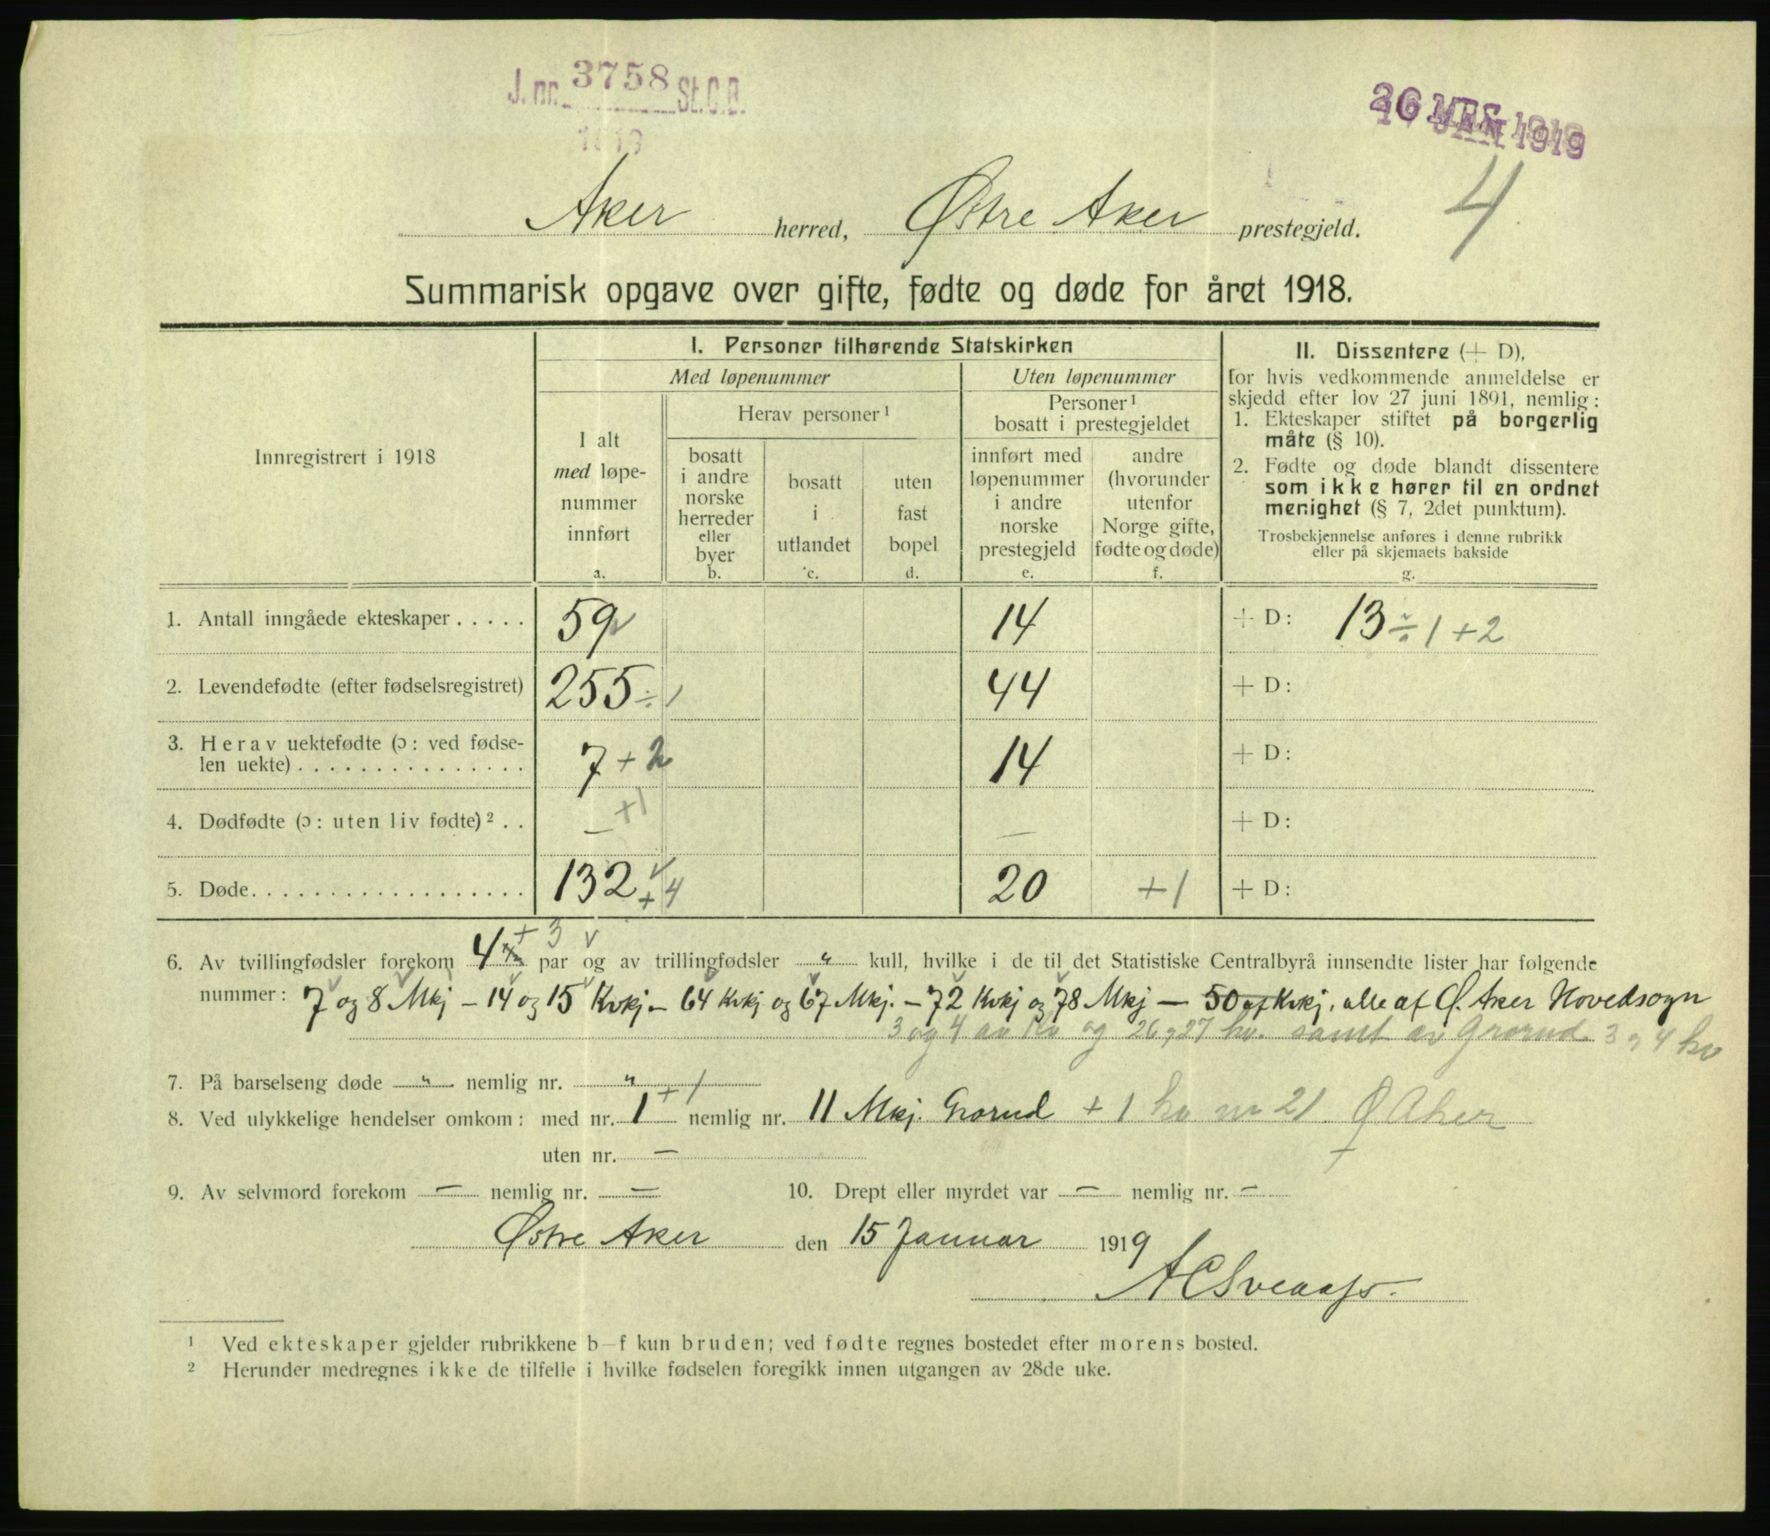 J. nr. 3758 St.C.B.
1919
1919
Aker herred, Østre Aker prestegjeld.
4
Summarisk opgave over gifte, fødte og døde for året 1918.
Innregistrert i 1918
I. Personer tilhørende Statskirken
Med løpenummer
Uten løpenummer
I alt
med løpe-
nummer
innført
a.
Herav personer ¹
bosatt
i andre
norske
herreder
eller
byer
b.
bosatt
i
utlandet
c.
uten
fast
bopel
d.
Personer ¹
bosatt i prestegjeldet
innført med
løpenummer
i andre
norske
prestegjeld
e.
andre
(hvorunder
utenfor
Norge gifte,
fødte og døde)
f.
II. Dissentere (+ D),
for hvis vedkommende anmeldelse er
skjedd efter lov 27 juni 1891, nemlig:
1. Ekteskaper stiftet på borgerlig
måte (§ 10).
2. Fødte og døde blandt dissentere
som ikke hører til en ordnet
menighet (§ 7, 2det punktum).
Trosbekjennelse anføres i denne rubrikk
eller på skjemaets bakside
g.
1. Antall inngåede ekteskaper . . . . . 59 14 + D: 13 ÷ 1 + 2
2. Levendefødte (efter fødselsregistret) 255 ÷ 1 44 + D:
3. Herav uektefødte (ɔ: ved fødse-
len uekte) . . . . . . . . . . . . . . . 7 + 2 14 + D:
4. Dødfødte (ɔ: uten liv fødte) ² . . — +1 — + D:
5. Døde. . . . . . . . . . . . . . . . . . 132 + 4 20 +1 + D:
6. Av tvillingfødsler forekom 4 + 3 par og av trillingfødsler " kull, hvilke i de til det Statistiske Centralbyrå innsendte lister har følgende
nummer: 7 og 8 Mkj — 14 og 15 Kvkj — 64 Kvkj og 67 Mkj. — 72 Kvkj og 78 Mkj — 50 af Kvkj, alle af Ø. Aker Hovedsogn
3 og 4 av og 26 og 27 kv. samt av Grorud 3 og 4 kv
7. På barselseng døde " nemlig nr. " + 1
8. Ved ulykkelige hendelser omkom: med nr. 1 nemlig nr. 11 Mkj. Grorud + 1 kv nr 21 Ø Aker
uten nr. —
9. Av selvmord forekom — nemlig nr. — 10. Drept eller myrdet var — nemlig nr. —
Østre Aker den 15 Januar 1919
¹ Ved ekteskaper gjelder rubrikkene b–f kun bruden; ved fødte regnes bostedet efter morens bosted.
² Herunder medregnes ikke de tilfelle i hvilke fødselen foregikk innen utgangen av 28de uke.